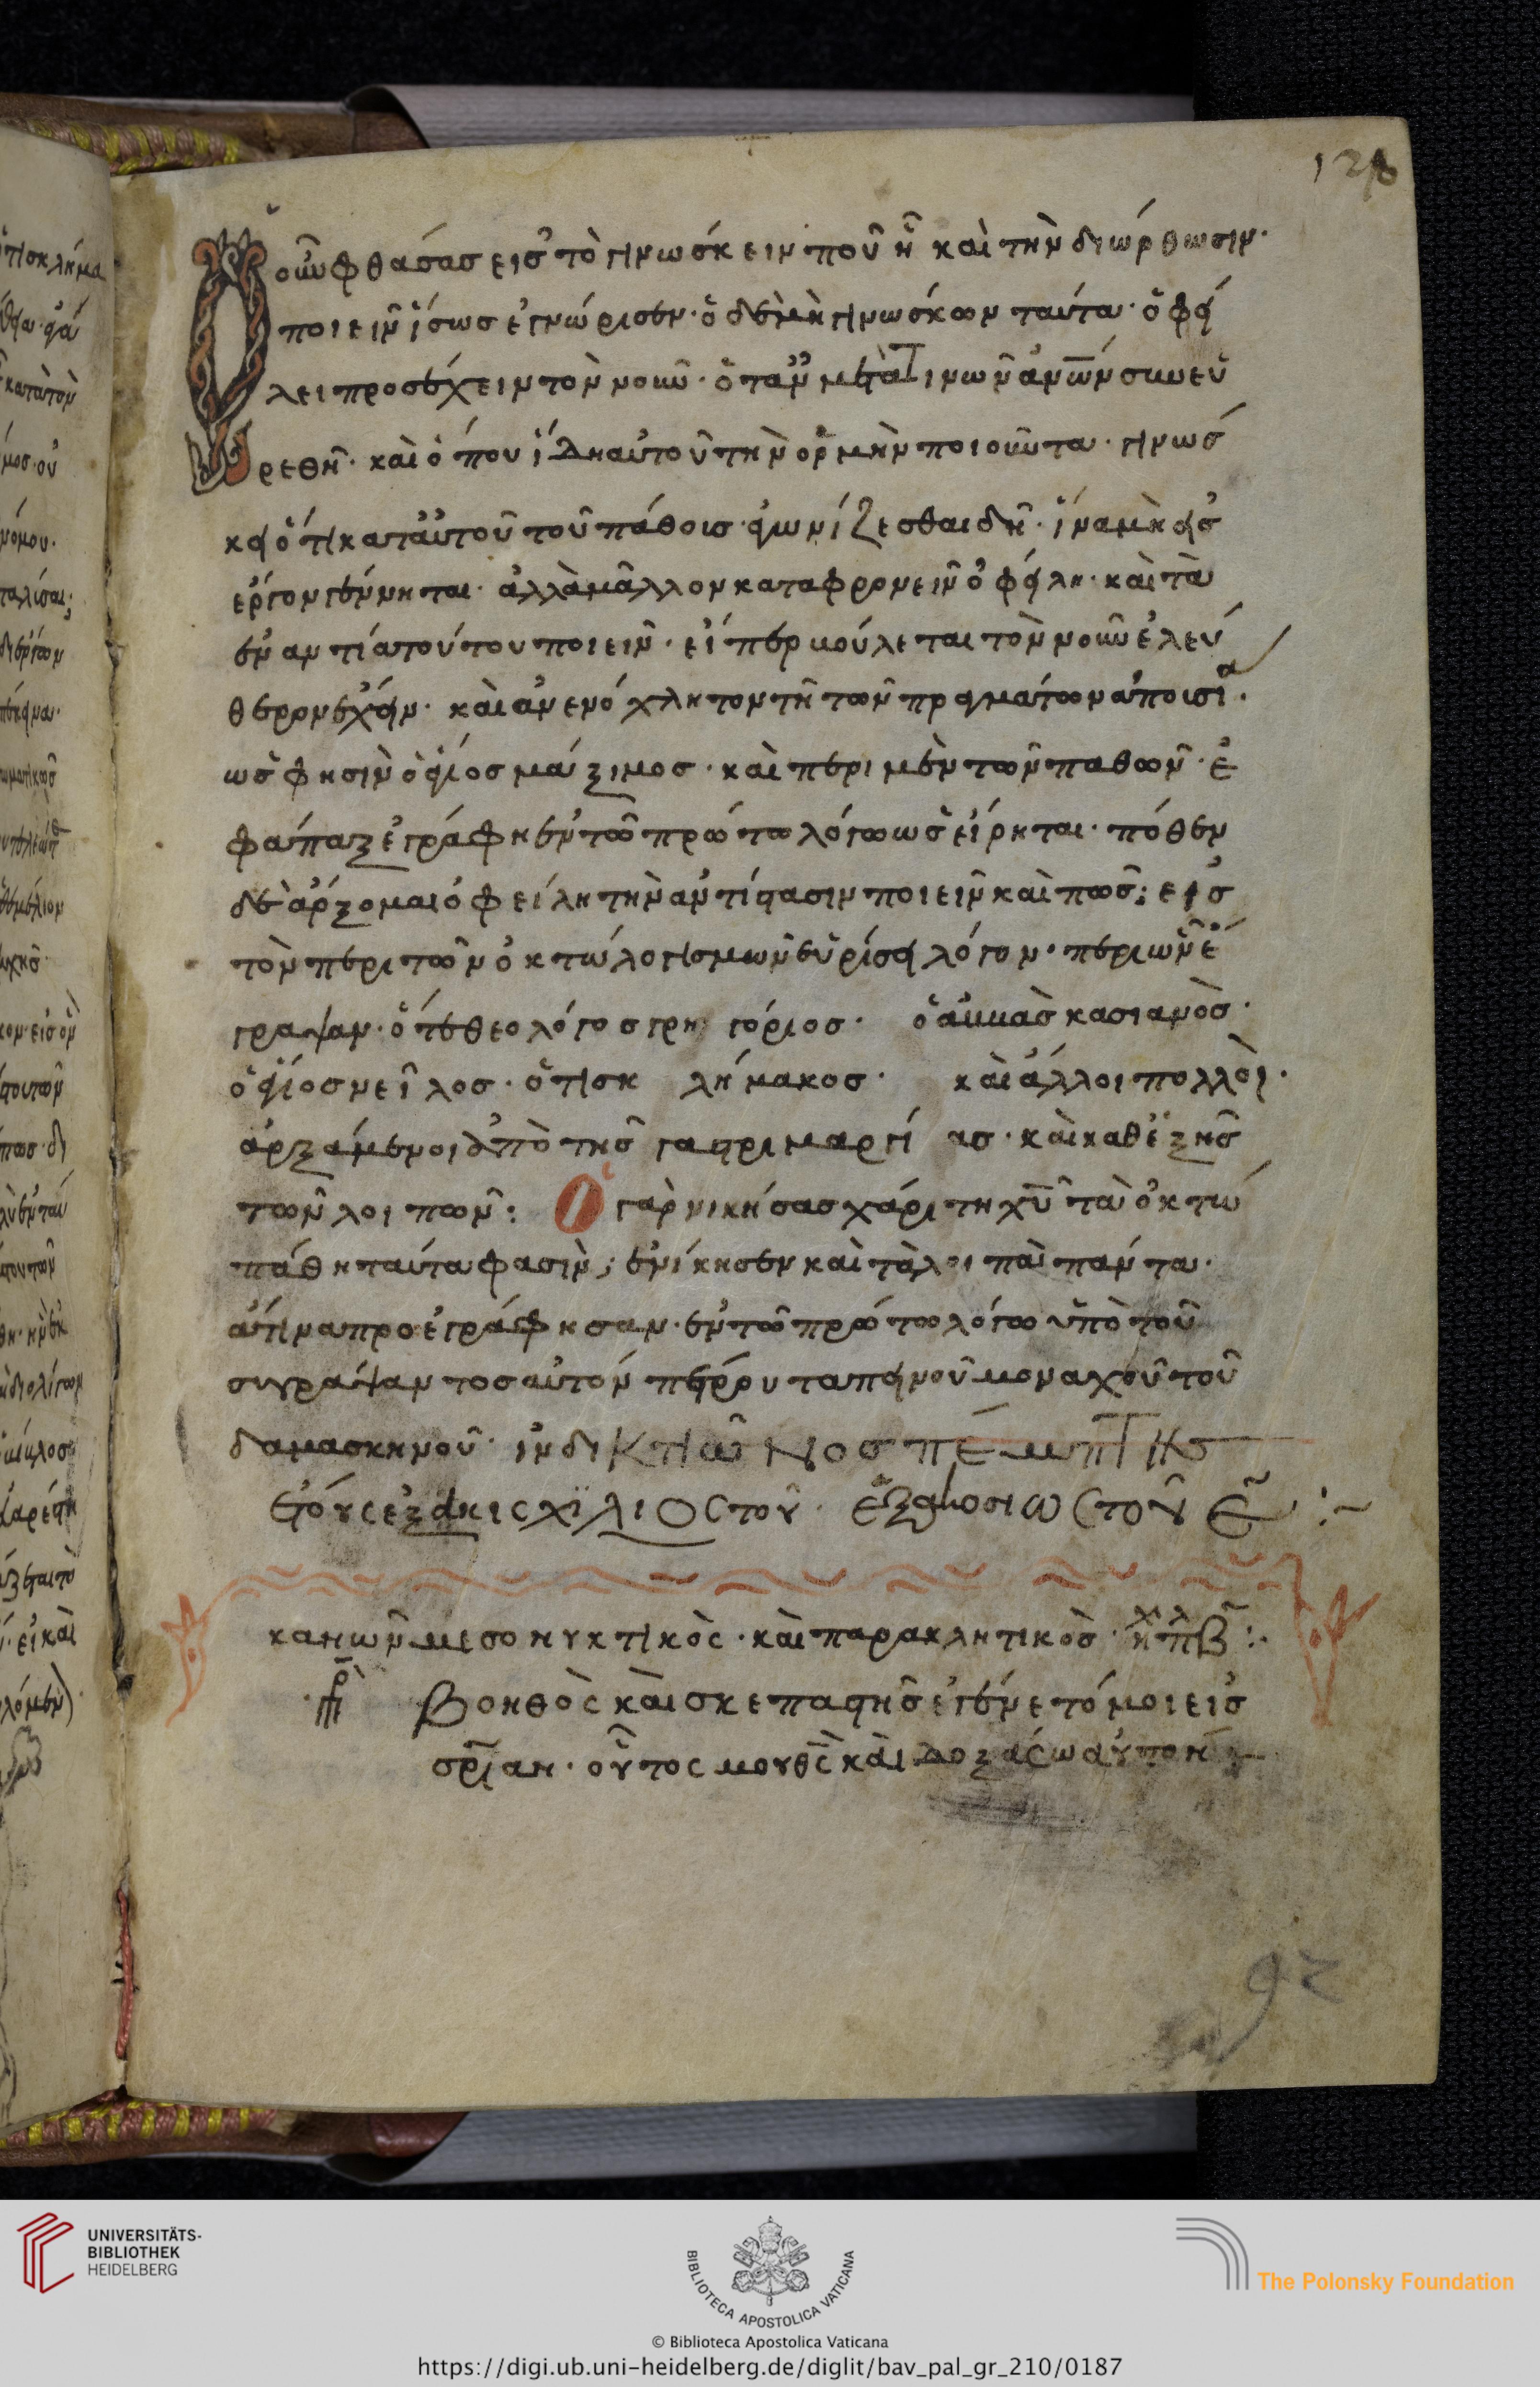 128
Ὁ οὖν φθάσας εἰς τὸ γινώσκειν ποῦ ἦ καὶ τὴν διώρθωσιν·
ποιεῖν ἴσως ἐγνώρισεν· ὁ δὲ μὴ γινώσκων ταῦτα· ὀφεί
λει προσέχειν τὸν νοῦν· ὅταν μετά τινων ἀνων συνευ
ρεθῆ· καὶ ὅπου ἴδη αὐτοῦ τὴν ὁρμὴν ποιοῦντα· γινώσ
κει ὅτι κατ αὐτοῦ τοῦ πάθους ἀγωνίζεσθαι δεῖ· ἵνα μὴ εἰς
ἔργον γένηται· ἀλλὰ μᾶλλον καταφρονεῖν ὀφείλη· καὶ τὰ
ἐναντία τούτου ποιεῖν· εἴπερ βούλεται τὸν νοῦν ἐλεύ
θερον ἔχειν· καὶ ἀνενόχλητον τῆ τῶν πραγμάτων ἀποισία·
ὡς φησὶν ὁ ἅγιος μάξιμος· καὶ περὶ μὲν τῶν παθῶν· ἐ
φάπαξ ἐγράφη ἐν τῶ πρώτω λόγω ὡς εἴρηται· πόθεν
δὲ ἄρξομαι ὀφείλη τὴν ἀντίστασιν ποιεῖν καὶ πῶς; εἰς
τὸν περὶ τῶν ὀκτὼ λογισμῶν εὑρίσει λόγον· περὶ ὧν ἔ
γραψαν· ὅ τε θεολόγος γρηγόριος· ὁ ἀββᾶς κασιανὸς·
ὁ ἅγιος νεῖλος· ὁ τῆς κλήμακος· καὶ ἄλλοι πολλοὶ·
ἀρξάμενοι ἀπὸ τῆς γαστριμαργίας· καὶ καθεξῆς
τῶν λοιπῶν: Ὁ γὰρ νικήσας χάριτι χυ τὰ ὀκτὼ
πάθη ταῦτα φασὶν; ἐνίκησεν καὶ τὰ λοιπὰ πάντα·
ἅτινα προεγράφησαν· ἐν τῶ πρώτω λόγω ὑπὸ τοῦ
συγράψαντος αὐτὸν πέτρου ταπεινοῦ μοναχοῦ τοῦ
δαμασκηνοῦ· ἰνδικτιῶνος πέμπτης
ἔτους ἑξάκις χϊλιοστοῦ· ἑξακοσιωστοῦ ε :~
κανὼν μεσονυκτικὸς· καὶ παρακλητικὸς· ἦχ πλ β :·
Βοηθὸς καὶ σκεπαστης ἐγένετό μοι εἰς
σρίαν· οὗτος μου θς καὶ δοξάσω αὐτὸν
92
UNIVERSITÄTS-
BIBLIOTHEK
HEIDELBERG
BIBLIOTECA APOSTOLICA VATICANA
The Polonsky Foundation
© Biblioteca Apostolica Vaticana
https://digi.ub.uni-heidelberg.de/diglit/bav_pal_gr_210/0187